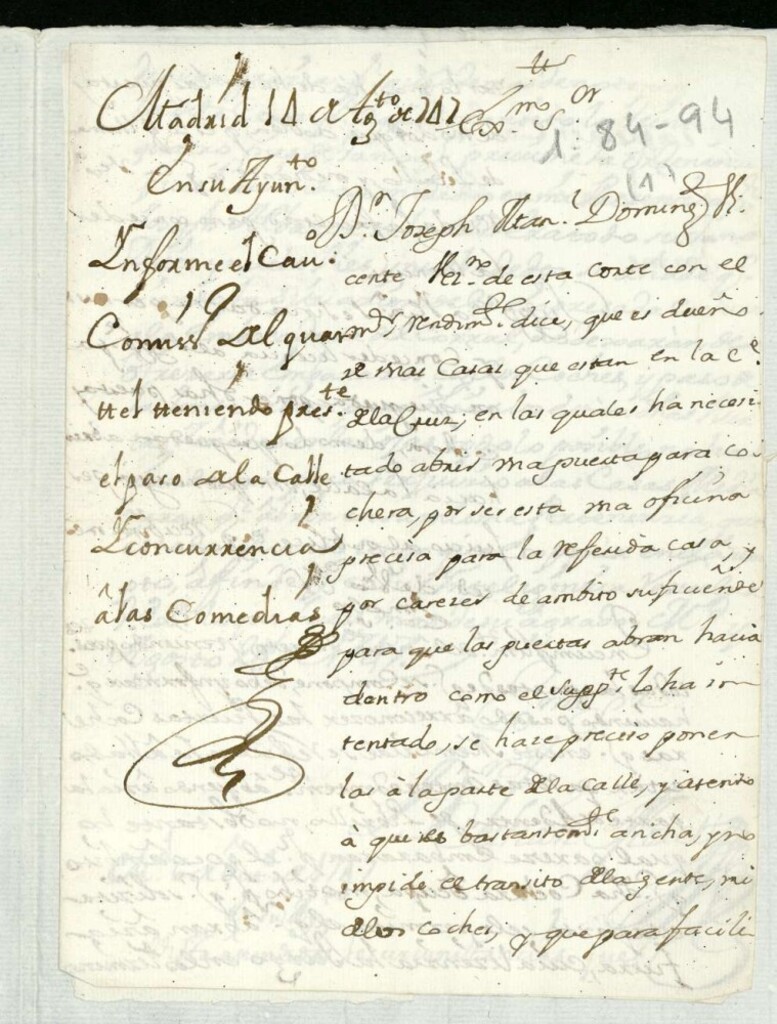 Madrid 14 de Ag.to de 747
En su Ayun.to
Informe el Cav.o
Comiss.o del quar
ttel tteniendo pres.te
el paso de la Calle
Y concurrencia
â las Comedias
tt
Ex.mo S.or
1-84-94
(1)
D.n Joseph Man.l Doming.z Vi
cente Vez.no de esta Corte con el
m.or rendim.te dice, que es dueño
de unas Casas que estan en la C.e
de la Cruz; en las quales ha necesi
tado abrir una puerta para co
chera, por ser esta una oficina
precisa para la referida casa, y
por carezer de ambito suficiente
para que las puertas abran hacia
dentro como el supp.te lo ha in
tentado, se hace preciso poner
las à la parte de la Calle, y atento
à que es bastantem.te ancha, y no
impide el transito de la gente, ni
de los coches; y que para facili